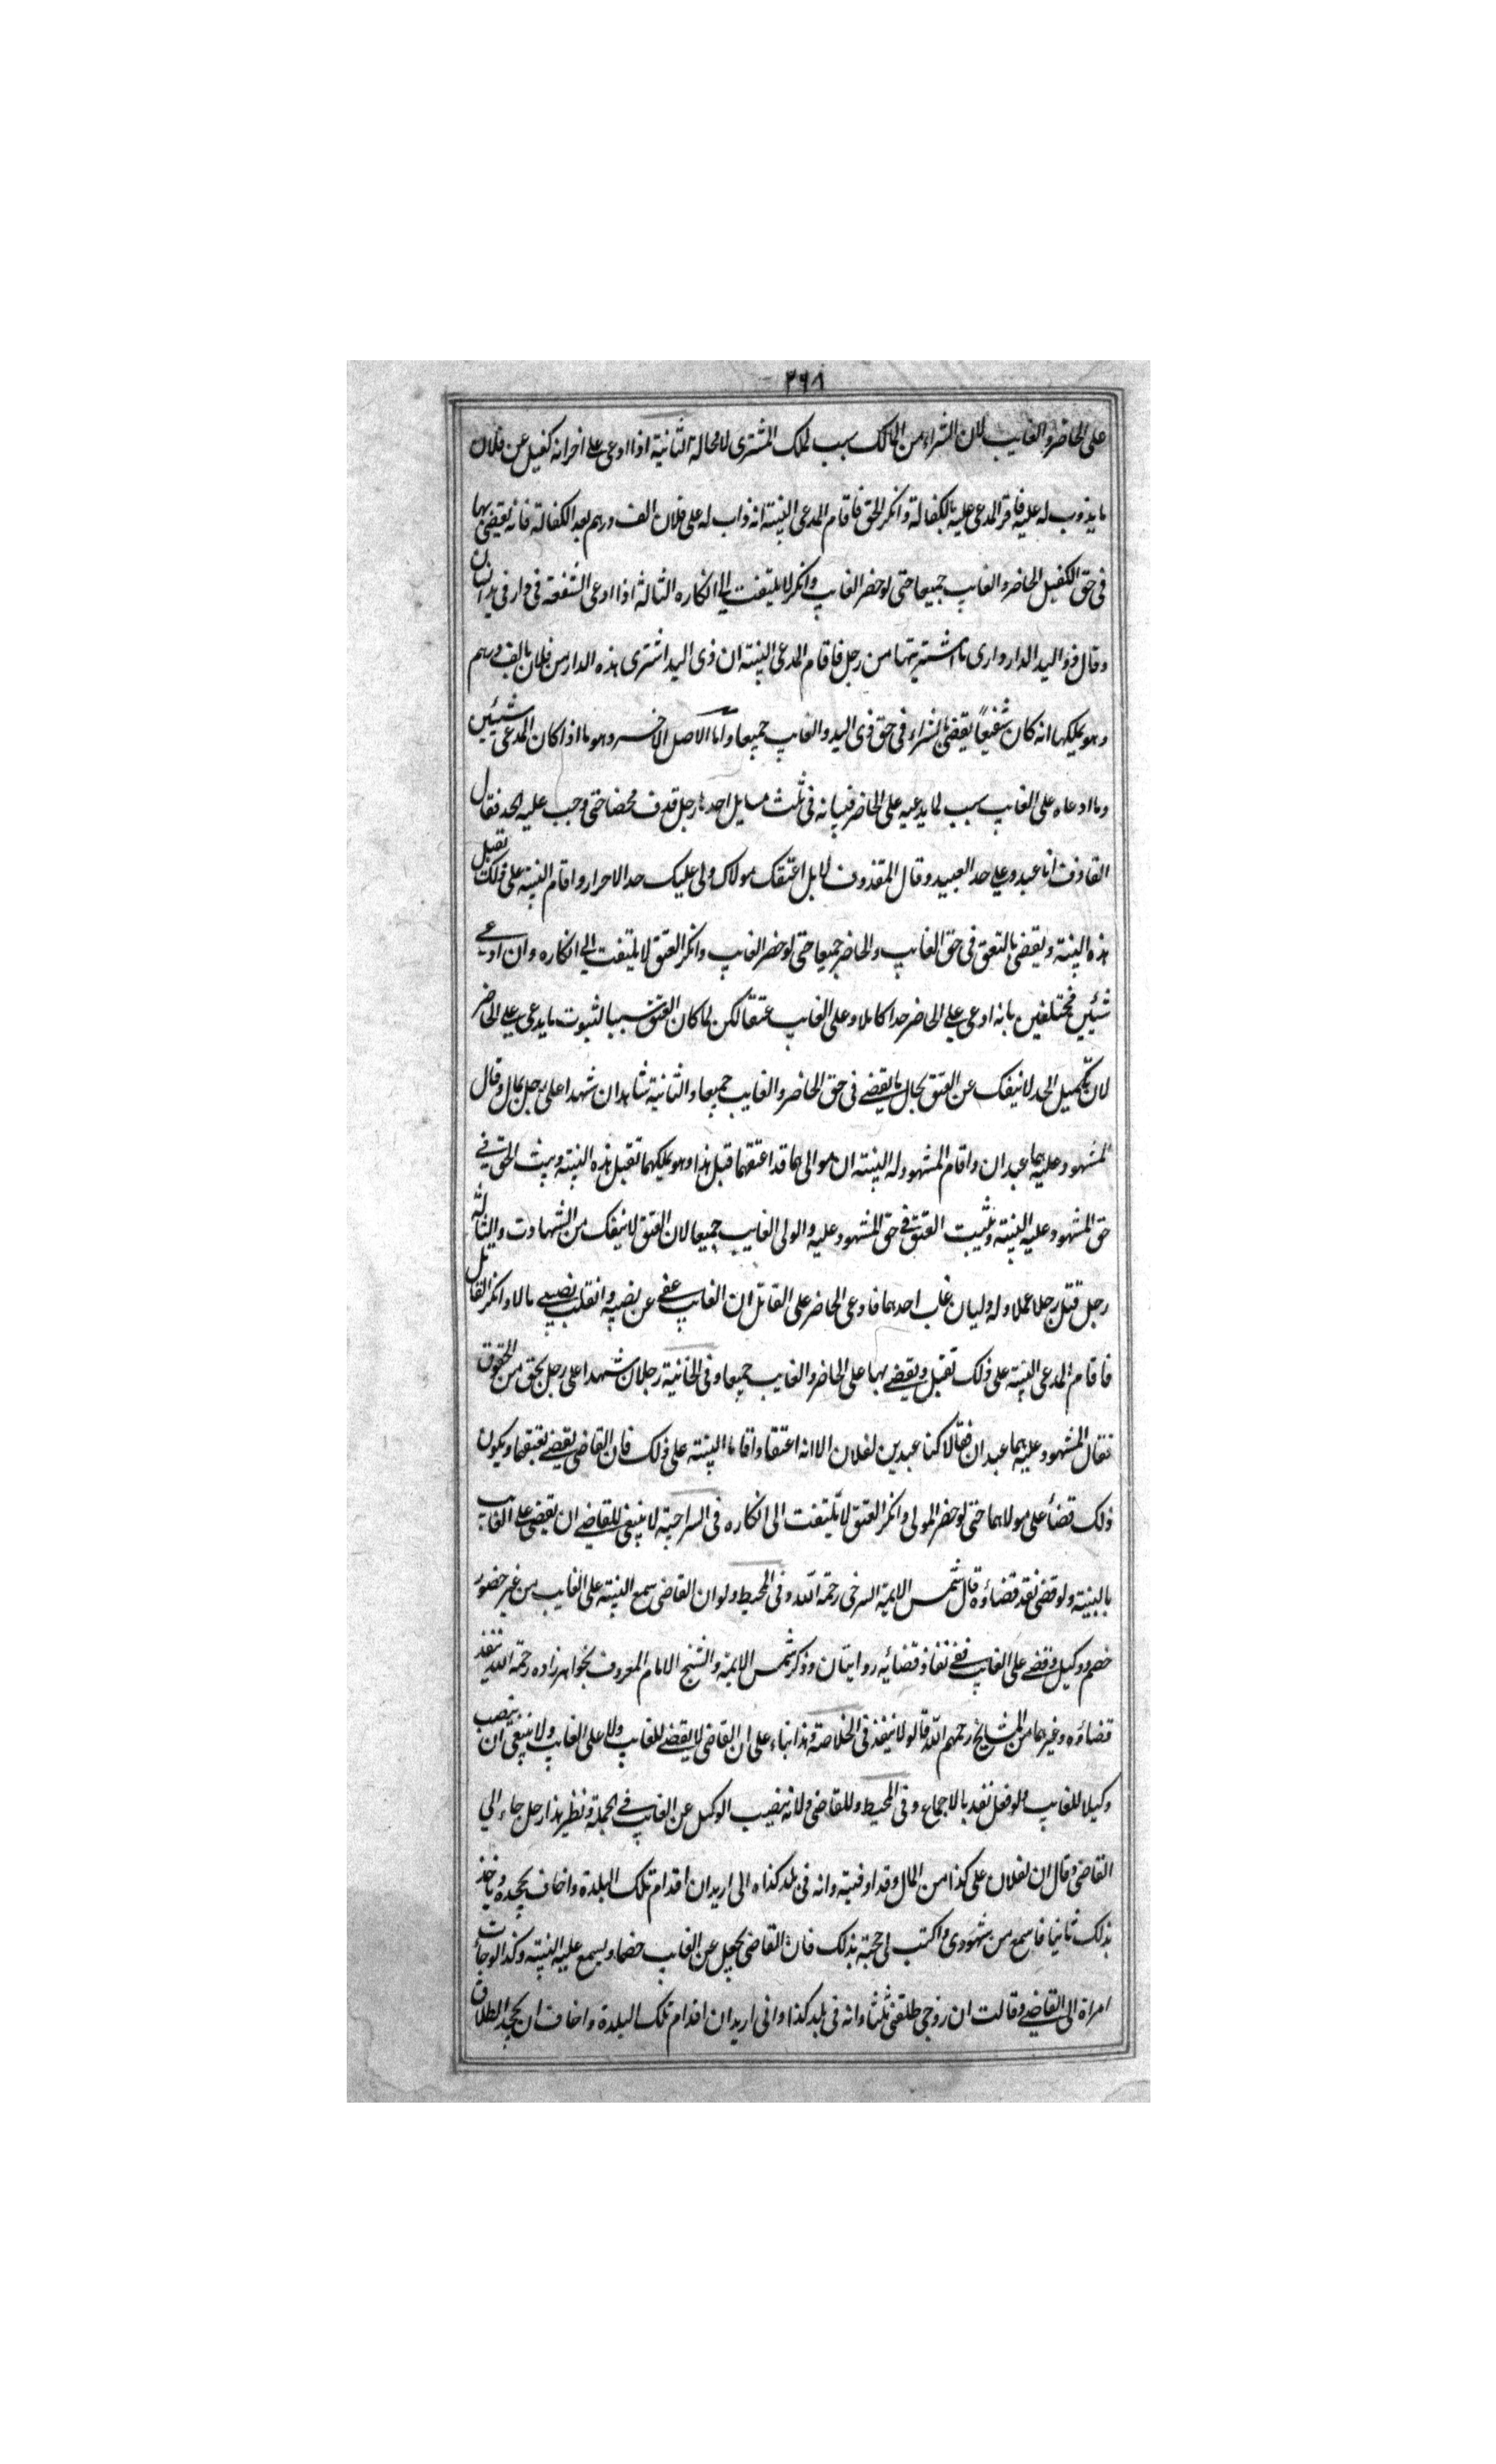 ٣٦٨
على الحاضر والغايب لان الشراء من المالك سبب لملك المشترى لا محالة الثانية اذا ادعى على اخر انه كفيل عن فلان
ما يذوب له عليه فاقر المدعى عليه بالكفالة وانكر الحق فاقام المدعى البينة انه ذاب له على فلان الف درهم بعد الكفالة فانه يقضى بها
فى حق الكفيل الحاضر والغايب جميعا حتى لو حضر الغايب وانكر لا يلتفت الى انكاره الثالثة اذا ادعى الشفعة فى دار فى يد انسان
وقال ذو اليد الدار دارى ما اشتريتها من رجل فاقام المدعى البينة ان ذى اليد اشترى هذه الدار من فلان بالف درهم
وهو يملكها انه كان شفيعاً يقضى بالشراء فى حق ذى اليد والغايب جميعا واما الاصل الاخر وهو ما اذا كان المدعى شيئين
وما ادعاه على الغايب سبب لما يدعيه على الحاضر فبيانه فى ثلث مسايل احدها رجل قذف محصنا حتى وجب عليه الحد فقال
القاذف انا عبد وعلى حد العبيد وقال المقذوف لا بل اعتقك مولاك ولى عليك حد الاحرار واقام البينة على ذلك تقبل
هذه البينة ويقضى بالتعق فى حق الغايب والحاضر جميعا حتى لو حضر الغايب وانكر العتق لا يلتفت الى انكاره وان ادعى
شيئين مختلفين بانه ادعى على الحاضر حدا كاملا وعلى الغايب عتقا لكن لما كان العتق سببا لثبوت ما يدعى على الحاضر
لان تكميل الحد لا ينفك عن العتق بحال ما يقضى فى حق الحاضر والغايب جميعا والثانية شاهدان شهدا على رجل بمال وقال
المشهود عليه هما عبدان واقام المشهود له البينة ان موالى هما قد اعتقهما قبل هذا وهو يملكهما تقبل هذه البينة ويثبت الحق فى
حق المشهود عليه البينة ويثبت العتق فى حق المشهود عليه والولى الغايب جميعا لان العتق لا ينفك من الشهادت والثالثة
رجل قتل رجلا عملا وله وليان غاب احدهما فادعى الحاضر على القاتل ان الغايب عفى عن نصيبه وانقلب نصيبى مالا وانكر القاتل
فاقام المدعى البينة على ذلك تقبل ويقضى بها على الحاضر والغايب جميعا وفى الخانية رجلان شهدا على رجل بحق من الحقوق
فقال المشهود عليه هما عبدان فقالا كنا عبدين لفلان الا انه اعتقنا واقاما البينة على ذلك فان القاضى يقضى بعتقهما ويكون
ذلك قضاء على مولاهما حتى لو حضر المولى وانكر العتق لا يلتفت الى انكاره فى السراجية لا ينبغى للقاضى ان يقضى على الغايب
بالبينة ولو قضى نفد قضاؤه قال شمس الايمة السرخى رحمة الله وفى المحيط ولو ان القاضى سمع البينة على الغايب من غير حضور
خصم ووكيل وقضى على الغايب ففى نفاذ قضائه روايتان وذكر شمس الايمة والشيخ الامام المعروف بخواهر زاده رحمة الله ينفذ
قضاؤه وغيرهما من المشايخ رحمهم الله قالو لا ينفذ فى الخلاصة وهذا بناء على ان القاضى لا يقضى للغايب ولا على الغايب ولا ينبغى ان ينصب
وكيلا للغايب ولو فعل نفد بالاجماع وفى المحيط وللقاضى ولانه ينصب الوكيل عن الغايب فى الجملة ونظير هذا رجل جاء الى
القاضى وقال ان لفلان على كذا من المال وقد اوفيته وانه فى بلد كذاه الى اريد ان اقدام تلك البلدة واخاف يجحده وياخذ
بذلك ثانيا فاسمع من شهودى واكتب لى حجة بذلك فان القاضى يجعل عن الغايب خصما ويسمع عليه البينة وكذا لو جاءت
امراة الى القاضى وقالت ان زوجى طلقنى ثلثا وانه فى بلد كذا وانى اريد ان اقدام تلك البلدة واخاف ان يجحد الطلاق